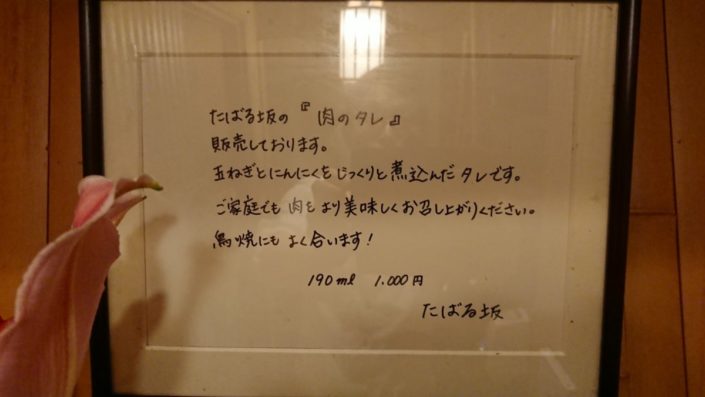 たばる坂の『肉のタレ』
販売しております。
玉ねぎとにんにくをじっくりと煮込んだタレです。
ご家庭でも肉をより美味しくお召し上がりください。
鳥焼にもよく合います!
190ml 1.000円
たばる坂